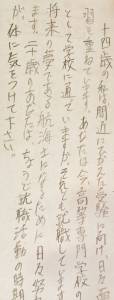 十四歳の私は間近にひかえた受験に向け、日々面
習を重ねています。あなたは今、高等専門学校の
として学校に通っていますか。それとも就職しています
将来の夢である航海士になるために日々努
ます。二十歳のあなたは、ちょうど就職活動の時期
が、体に気をつけて下さい。